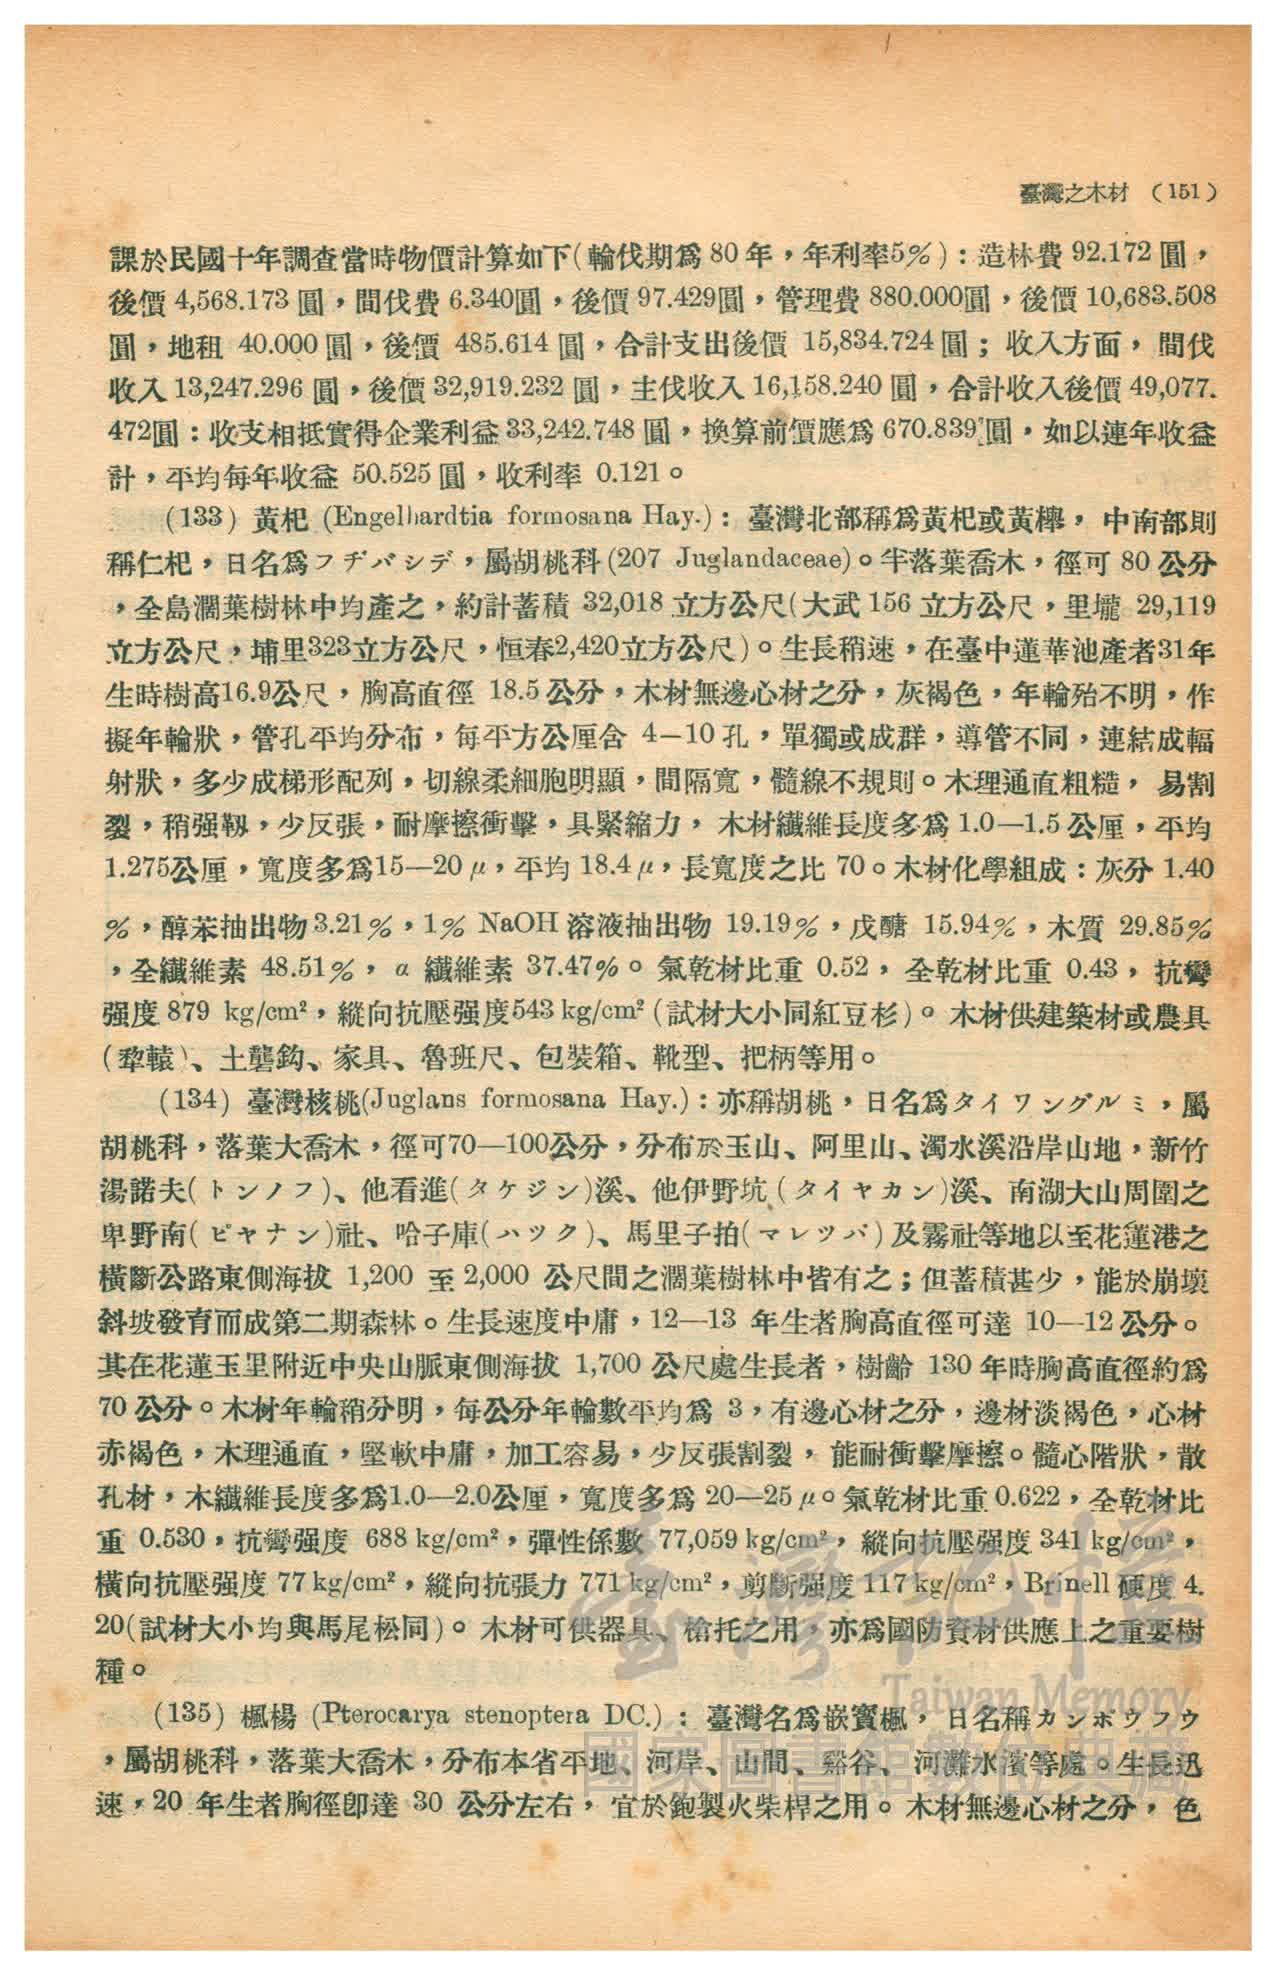 臺灣之木材 (151)
課於民國十年調查當時物價計算如下(輪伐期爲80年，年利率5%)：造林費92.172圓，
後價4,568.173圓，間伐費6.340圓，後價97.429圓，管理費880.000圓，後價10,683.508
圓，地租 40.000圓，後價 485.614圓，合計支出後價 15,834.724圓；收入方面，間伐
收入13,247.296圓，後價32,919.232圓，主伐收入16,158.240圓，合計收入後價49,077.
472圓：收支相抵實得企業利益33,242.748圓，換算前價應爲670.839圓，如以連年收益
計，平均每年收益 50.525圓，收利率 0.121。
(133) 黃杞 (Engelhardtia formosana Hay.)：臺灣北部稱爲黃杞或黃欅，中南部則
稱仁杞，日名爲フヂバシデ，屬胡桃科(207 Juglandaceae)。半落葉喬木，徑可80公分
，全島濶葉樹林中均產之，約計蓄積 32,018立方公尺(大武156立方公尺，里壠 29,119
立方公尺，埔里323立方公尺，恒春2,420立方公尺)。生長稍速，在臺中蓮華池產者31年
生時樹高16.9公尺，胸高直徑 18.5公分，木材無邊心材之分，灰褐色，年輪殆不明，作
擬年輪狀，管孔平均分布，每平方公厘含 4—10孔，單獨或成群，導管不同，連結成輻
射狀，多少成梯形配列，切線柔細胞明顯，間隔寬，髓線不規則。木理通直粗糙，易割
裂，稍强靱，少反張，耐摩擦衝擊，具緊縮力，木材纖維長度多爲1.0—1.5公厘，平均
1.275公厘，寬度多爲15—20μ，平均18.4μ，長寬度之比70。木材化學組成：灰分1.40
%，醇苯抽出物3.21%，1% NaOH溶液抽出物 19.19%，戊醣 15.94%，木質 29.85%
，全纖維素 48.51%，α 纖維素 37.47%。氣乾材比重 0.52，全乾材比重 0.43，抗彎
强度879 kg/cm²，縱向抗壓强度543 kg/cm²(試材大小同紅豆杉)。木材供建築材或農具
(犂轅)、土礱鈎、家具、魯班尺、包裝箱、靴型、把柄等用。
(134) 臺灣核桃(Juglans formosana Hay.)：亦稱胡桃，日名爲タイワングルミ，屬
胡桃科，落葉大喬木，徑可70—100公分，分布於玉山、阿里山、濁水溪沿岸山地，新竹
湯諾夫(トンノフ)、他看進(タケジン)溪、他伊野坑(タイヤカン)溪、南湖大山周圍之
卑野南(ピヤナン)社、哈子庫(ハツク)、馬里子拍(マレツパ)及霧社等地以至花蓮港之
橫斷公路東側海拔 1,200 至 2,000 公尺間之濶葉樹林中皆有之；但蓄積甚少，能於崩壞
斜坡發育而成第二期森林。生長速度中庸，12—13 年生者胸高直徑可達 10—12公分。
其在花蓮玉里附近中央山脈東側海拔 1,700 公尺處生長者，樹齡 130年時胸高直徑約爲
70公分。木材年輪稍分明，每公分年輪數平均爲 3，有邊心材之分，邊材淡褐色，心材
赤褐色，木理通直，堅軟中庸，加工容易，少反張割裂，能耐衝擊摩擦。髓心階狀，散
孔材，木纖維長度多爲1.0—2.0公厘，寬度多爲 20—25μ。氣乾材比重0.622，全乾材比
重 0.530，抗彎强度 688 kg/cm²，彈性係數 77,059 kg/cm²，縱向抗壓强度341 kg/cm²，
橫向抗壓强度77 kg/cm²，縱向抗張力 771 kg/cm²，剪斷强度117 kg/cm²，Brinell硬度4.
20(試材大小均與馬尾松同)。木材可供器具、槍托之用，亦爲國防資材供應上之重要樹
種。
(135) 楓楊 (Pterocarya stenoptera DC.)：臺灣名爲嵌寶楓，日名稱カンポウフウ
，屬胡桃科，落葉大喬木，分布本省平地、河岸、山間、谿谷、河灘水濱等處。生長迅
速，20 年生者胸徑卽達 30 公分左右，宜於鉋製火柴桿之用。木材無邊心材之分，色
臺灣記憶
Taiwan Memory
國家圖書館數位典藏